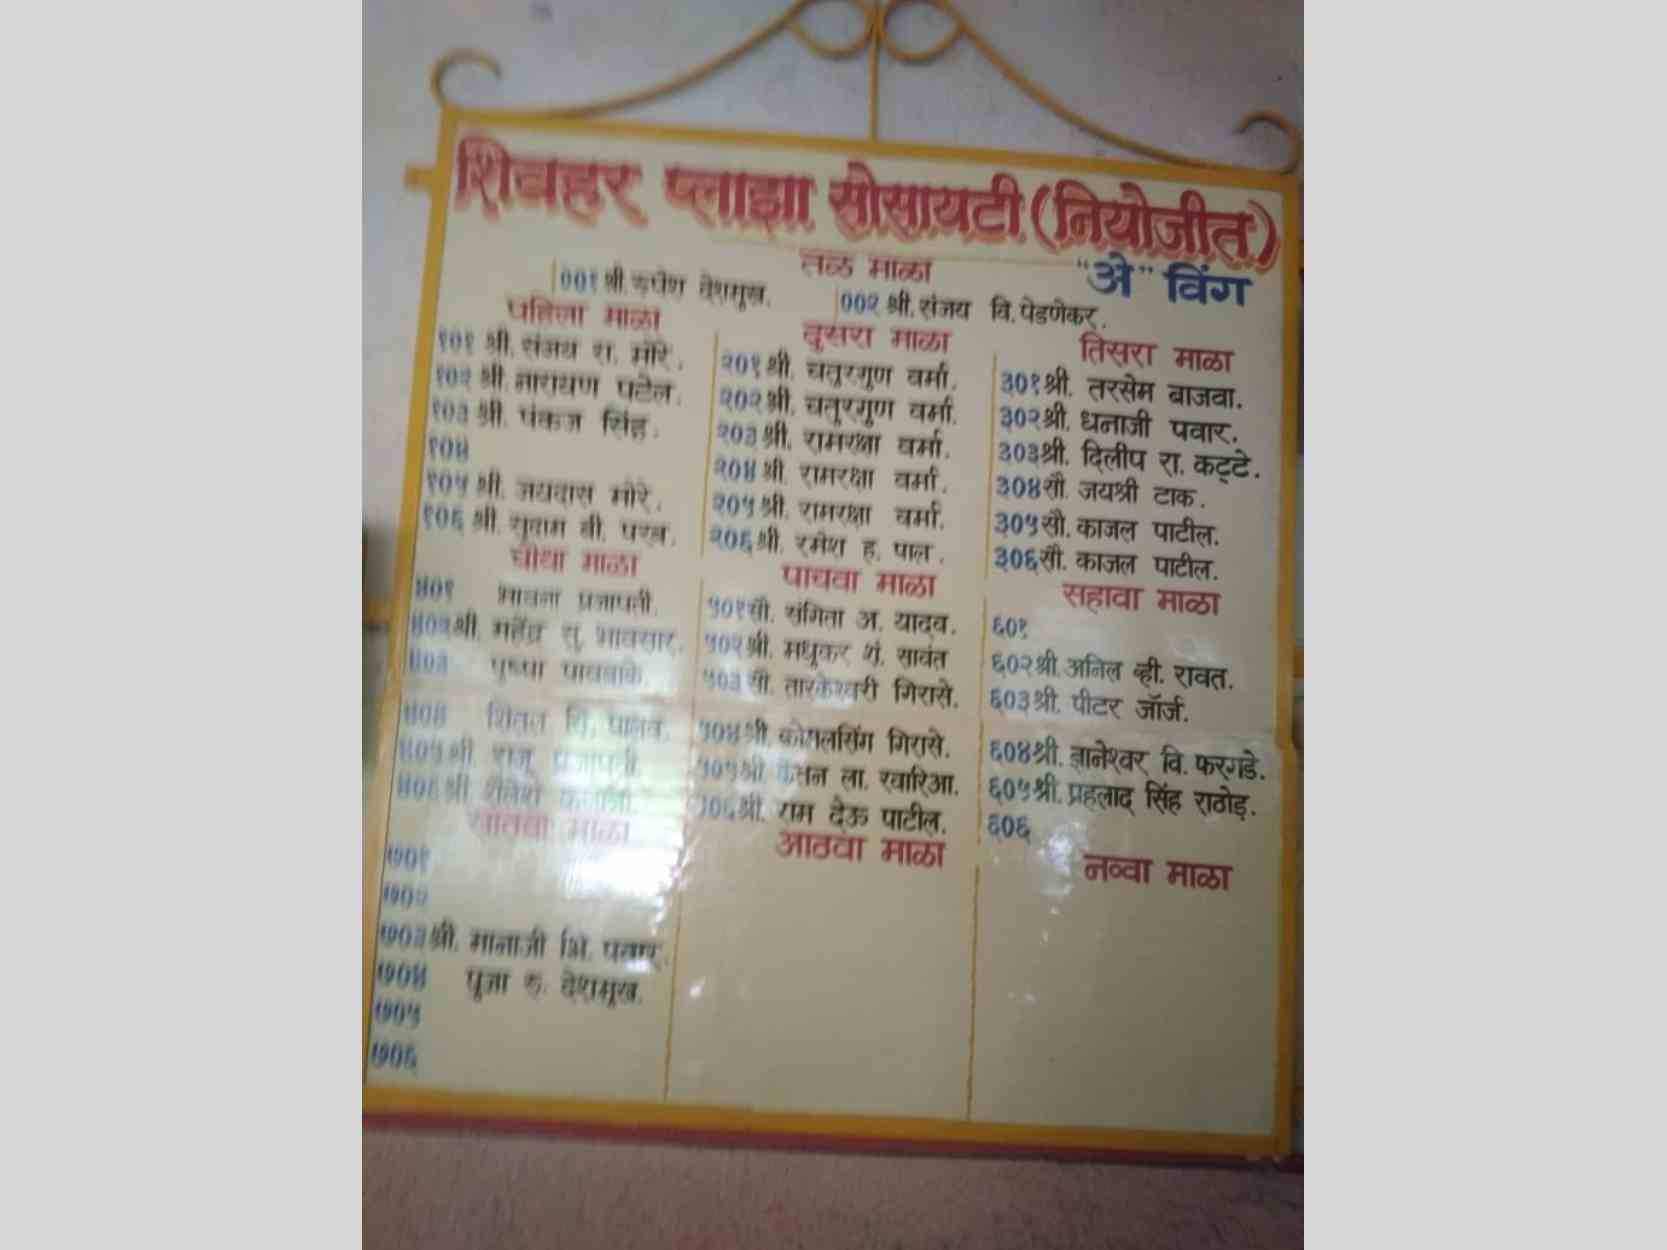 शिवहर प्लाझा सोसायटी (नियोजीत)
तळ माळा
"अे" विंग
००१ श्री. रुपेश देशमुख.
००२ श्री. संजय वि. पेडणेकर.
पहिला माळा
१०१ श्री. संजय रा. मोरे.
१०२ श्री. नारायण पटेल.
१०३ श्री. पंकज सिंह.
१०४
१०५ श्री. जयदास मोरे.
१०६ श्री. सुदाम बी. परब.
दुसरा माळा
२०१ श्री. चतुरगुण वर्मा.
२०२ श्री. चतुरगुण वर्मा.
२०३ श्री. रामरक्षा वर्मा.
२०४ श्री. रामरक्षा वर्मा.
२०५ श्री. रामरक्षा वर्मा.
२०६ श्री. रमेश ह. पाल.
तिसरा माळा
३०१ श्री. तरसेम बाजवा.
३०२ श्री. धनाजी पवार.
३०३ श्री. दिलीप रा. कट्टे.
३०४ सौ. जयश्री टाक.
३०५ सौ. काजल पाटील.
३०६ सौ. काजल पाटील.
चौथा माळा
४०१ भावना प्रजापती.
४०२ श्री. महेंद्र सु. भावसार.
४०३ पुष्पा
४०४ शितल
४०५ श्री राजू प्रजापती.
४०६ श्री.
पाचवा माळा
५०१ सौ. संगिता अ. यादव.
५०२ श्री. मधुकर शं. सावंत
५०३ सौ. तारकेश्वरी गिरासे.
५०४ श्री. कोमलसिंग गिरासे.
५०५ श्री. ला. रवारिआ.
५०६ श्री. राम देऊ पाटील.
सहावा माळा
६०१
६०२ श्री. अनिल व्ही. रावत.
६०३ श्री. पीटर जॉर्ज.
६०४ श्री. ज्ञानेश्वर वि. फरगडे.
६०५ श्री. प्रहलाद सिंह राठोड़.
६०६
सातवा माळा
७०१
७०२
७०३ श्री. मानाजी भि. पवार.
७०४ पुजा रु. देशमुख.
७०५
७०६
आठवा माळा
नव्वा माळा